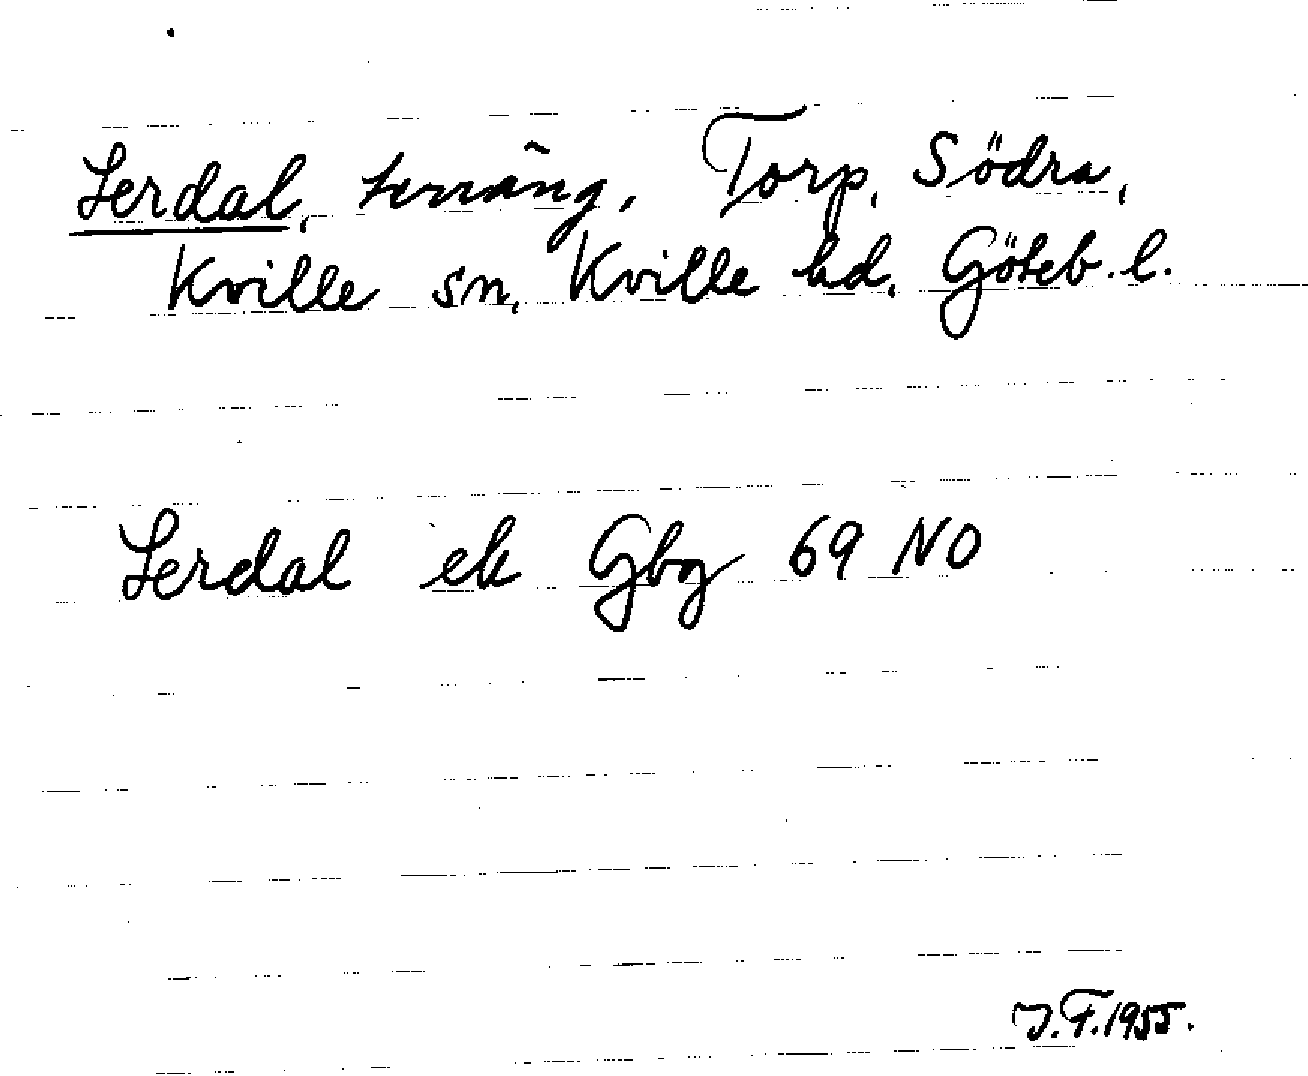 Lerdal, terräng, Torp, Södra,
Kville sn, Kville hd, Göteb. l.
Lerdal ek Gbg 69 NO
J.F. 1955.